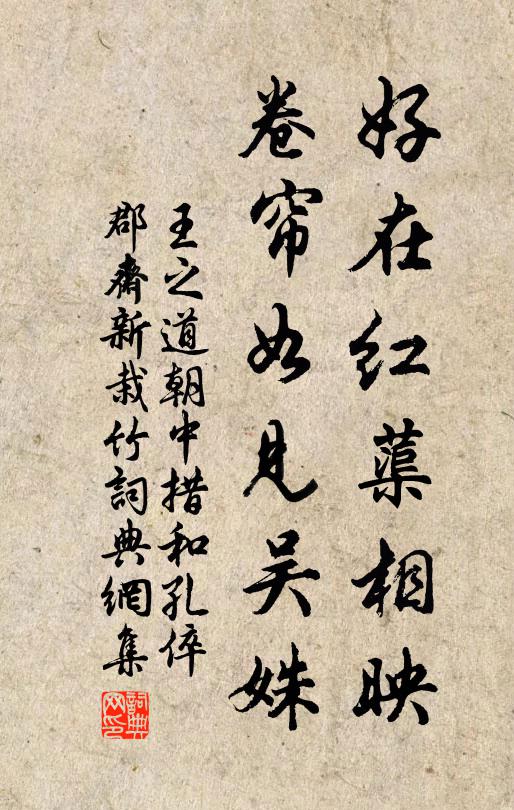 好在红蕖相映
卷帘如见吴姝
王之道朝中措和孔倅
郡齋新栽竹詞典網集
詞典网印